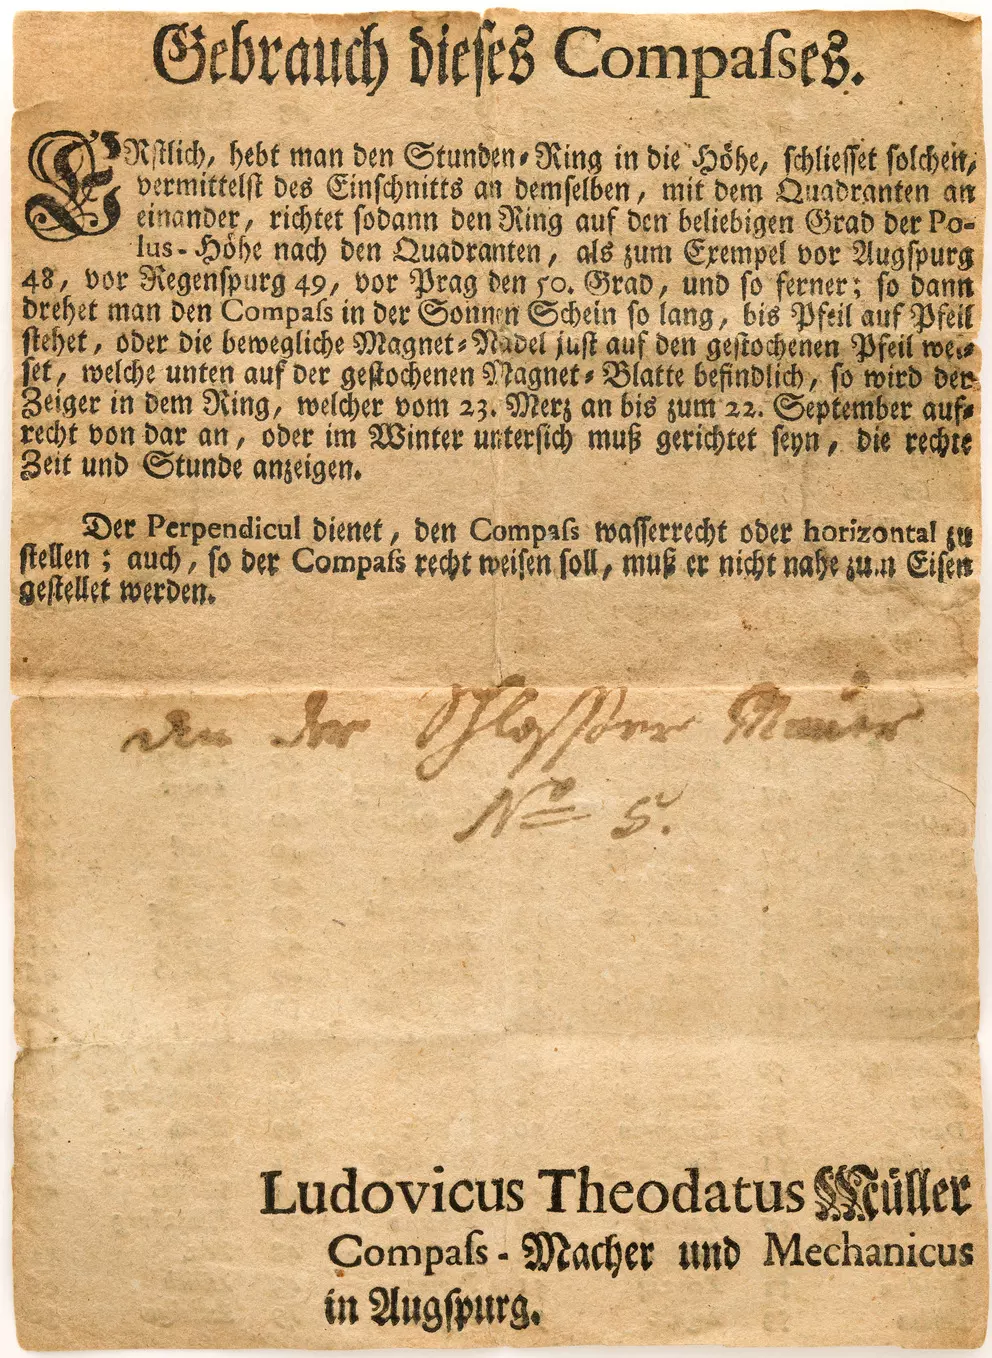 Gebrauch dieses Compaſses.
ERſtlich, hebt man den Stunden-Ring in die Höhe, ſchlieſſet ſolchen,
vermittelſt des Einſchnitts an demſelben, mit dem Quadranten an
einander, richtet ſodann den Ring auf den beliebigen Grad der Po-
lus-Höhe nach den Quadranten, als zum Exempel vor Augſpurg
48, vor Regenſpurg 49, vor Prag den 50. Grad, und ſo ferner; ſo dann
drehet man den Compaſs in der Sonnen Schein ſo lang, bis Pfeil auf Pfeil
ſtehet, oder die bewegliche Magnet-Nadel juſt auf den geſtochenen Pfeil wei-
ſet, welche unten auf der geſtochenen Magnet-Blatte befindlich, ſo wird der
Zeiger in dem Ring, welcher vom 23. Merz an bis zum 22. September auf-
recht von dar an, oder im Winter unterſich muß gerichtet ſeyn, die rechte
Zeit und Stunde anzeigen.
Der Perpendicul dienet, den Compaſs waſſerrecht oder horizontal zu
ſtellen; auch, ſo der Compaſs recht weiſen ſoll, muß er nicht nahe zum Eiſen
geſtellet werden.
der Schloſſer Mauer
No 5.
Ludovicus Theodatus Müller
Compaſs-Macher und Mechanicus
in Augſpurg.